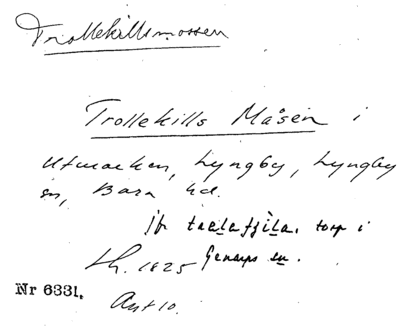 Trollekillsmossen
Trollekills Måsen i
Utmarken, Lyngby, Lyngby
sn, Bara hd.
jfr traalafjila, torp i
Lh. 1825 Genarps sn.
Nr 6331. Ant 10.